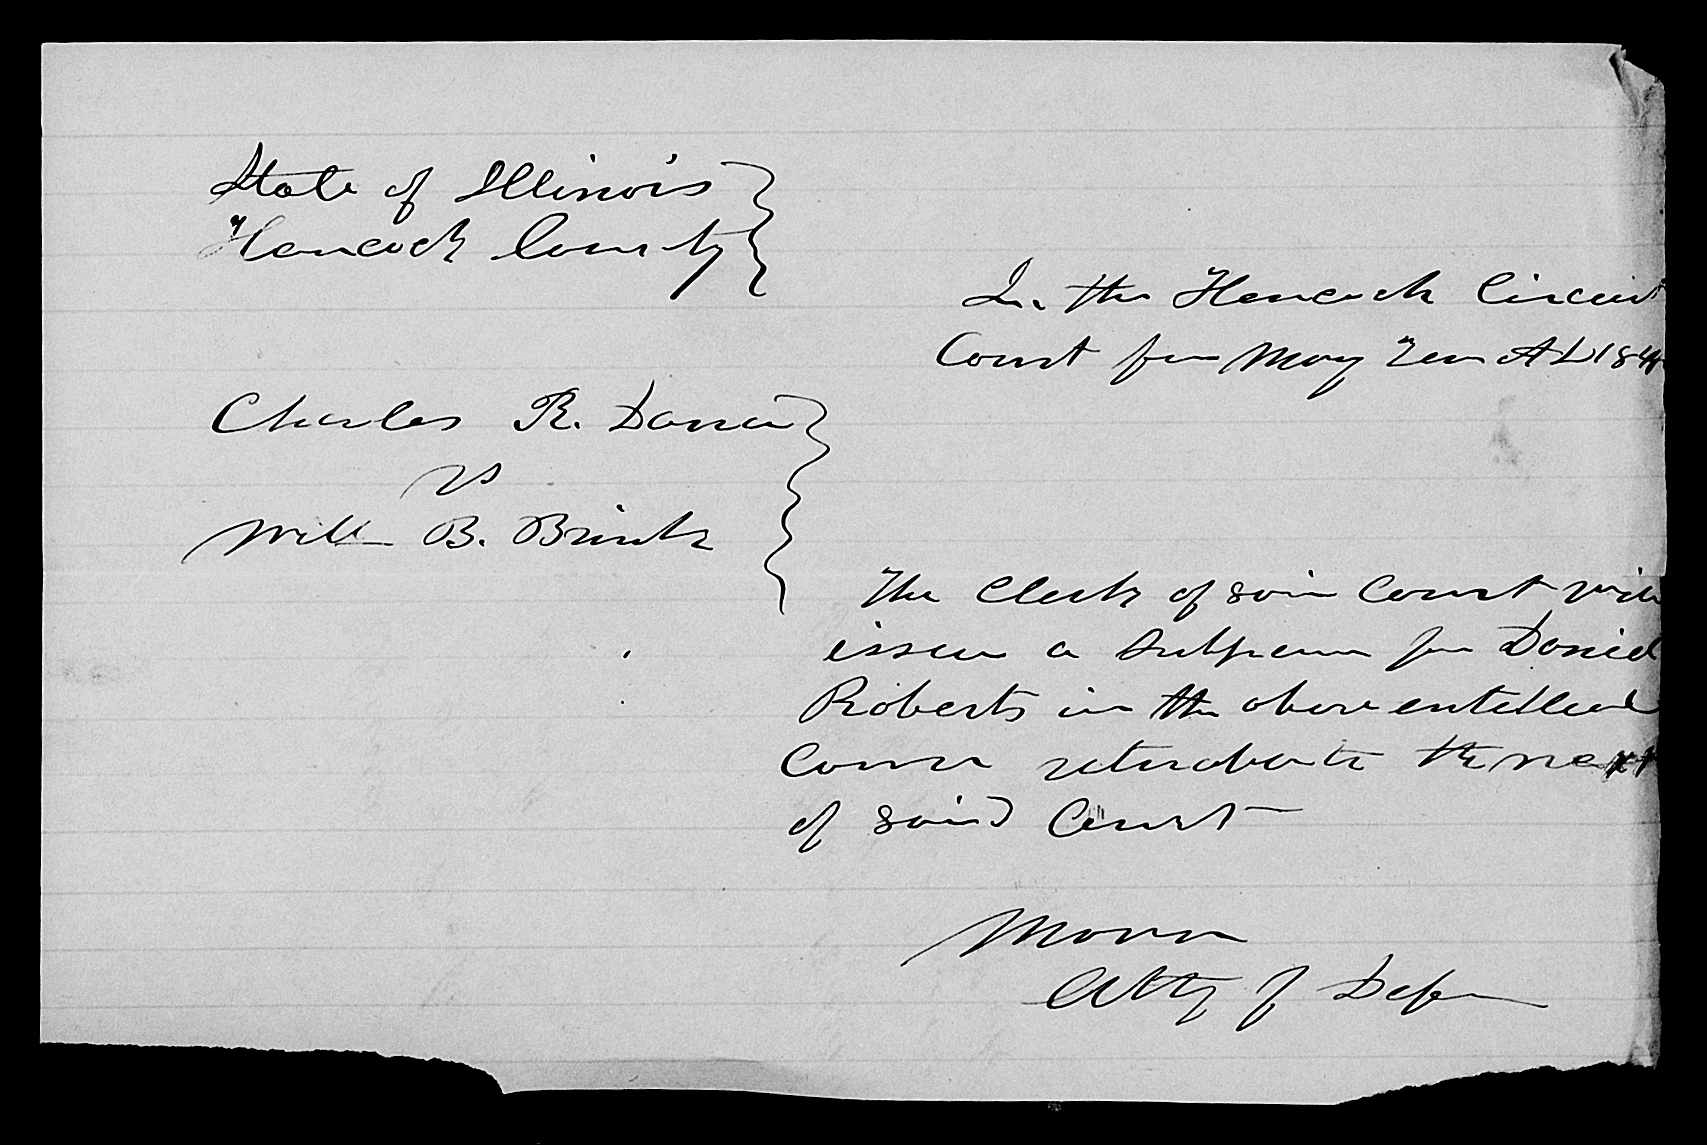 State of Illinois
Hancock County
In the Hancock Circuit
Court for May Term AD 184
Charles R. Dana
vs
Willm B. Brink
The Clerk of said Court will
issue a Subpoena for Daniel
Roberts in the above entitled
Cause returnable to the next
of said Court
Atty for Defen